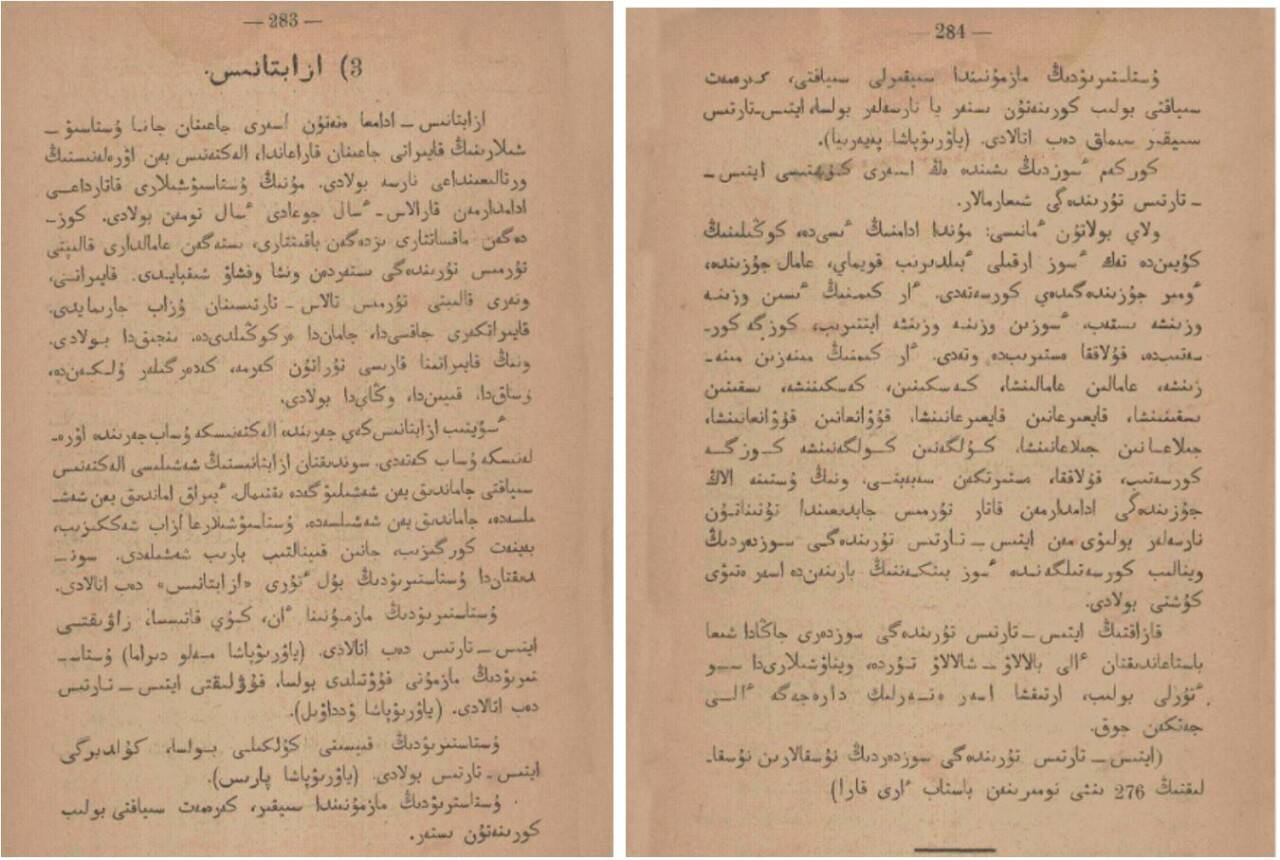 — 283 —
3) ازابتانىس.
ازابتانىس ــ ادامعا ەتەتۇن اسەرى جاعىنان جانا ۇستاسىۋ ــ
شىلارىنىڭ قايىراتى جاعىنان قاراعاندا، الەكتەنىس بەن اۋرەلەنىستىڭ
ورتالىعىنداعى نارسە بولادى. مۇنىڭ ۇستاسىۋشىلارى قاتارداعى
ادامدارمەن قارالاس ــ ٴسال جوعادى ٴسال تومەن بولادى. كوز ــ
دەگەن ماقساتتارى ىزدەگەن باقىتتارى، ىستەگەن عامالدارى قالىپتى
تۇرمىس تۇرىندەگى ىستەردەن ونشا وقشاۋ شىقپايدى. قايىراتى،
ونەرى قالىپتى تۇرمىس تالاس ــ تارتىسىنان ۇزاب جارىمايدى.
قايىراتكەرى جاقسى‌دا، جامان‌دا مركوڭىلدى‌دە، ىنجىق‌دا بولادى.
ونىڭ قايىراتىنا قارسى تۇراتۇن كەرمە، كەدەرگىلەر ۇلكەن‌دە،
ۇساق‌دا، قىيىن‌دا، وڭاي‌دا بولادى.
ٴسۇيتىب ازابتانىس كەي جەرىندە الەكتەنىسكە ۇساب جەرىندە اۋرە ــ
لەنىسكە ۇساب كەتەدى. سوندىقتان ازابتانىستىڭ شەشىلىسى الەكتەنىس
سىياقتى جاماندىق بەن شەشىلىۋگەدە ىقتىمال. ٴبىراق اماندىق بەن شەشـ
ىلسەدە، جاماندىق بەن شەشىلسەدە، ۇستاسىۋشىلارعا ازاب شەككىزىب،
بەينەت كورگىزىب، جانىن قىينالتىب بارىب شەشىلەدى. سونــ
دىقتان‌دا ۇستاستىرىۋدىڭ بۇل ٴتۇرى «ازابتانىس» دەب اتالادى.
ۇستاستىرىۋدىڭ مازمۇنىنا ٴان، كۇي قاتىسسا، زاۋىقتى
ايتىس ــ تارتىس دەب اتالادى. (ياۋرىۋپاشا مەلو دىراما) ۇستاســ
تىرىۋدىڭ مازمۇنى قۇۋتىلدى بولسا، قۇۋلىقتى ايتىس ــ تارتىس
دەب اتالادى. (ياۋرىۋپاشا ۋدداۋىل).
ۇستاستىرىۋدىڭ قىيسىنى كۇلكىلى بولسا، كۇلدىرگى
ايتىس ــ تارتىس بولادى. (ياۋرىۋپاشا پارىس).
ۇستاستىرىۋدىڭ مازمۇنىندا سىيقىر، كەرەمەت سىياقتى بولىب
كورىنەتۇن ىستەر.
— 284 —
ۇستاستىرىۋدىڭ مازمۇنىندا سىيقىرلى سىياقتى، كەرەمەت
سىياقتى بولىب كورىنەتۇن ىستەر يا نارسەلەر بولسا، ايتىس ــ تارتىس
سىيقىر سىماق دەب اتالادى. (ياۋرىۋپاشا پەيەرىيا).
كوركەم ٴسوزدىڭ ىشىندە ەڭ اسەرى كۇشتىسى ايتىس ــ
ــ تارتىس تۇرىندەگى شىعارمالار.
ولاي بولاتۇن ٴمانىسى: مۇندا ادامنىڭ ٴىسى‌دە، كوڭىلىنىڭ
كۇيىن‌دە تەك ٴسوز ارقىلى ٴبىلدىرىب قويماي، عامال جۇزىندە،
ٴومىر جۇزىندەگىدەي كورسەتەدى. ٴار كىمنىڭ ٴىسىن وزىنە
وزىنشە ىستەب، ٴسوزىن وزىنە وزىنشە ايتتىرىب، كوزگە كورــ
سەتىب‌دە، قۇلاققا ەستىرىب‌دە وتەدى. ٴار كىمنىڭ مىنەزىن مىنەــ
زىنشە، عامالىن عامالىنشا، كەسكىنىن، كەسكىنىنشە، ىسقىنىن
ىسقىنىنشا، قايعىرعانىن قايعىرعانىنشا، قۇۋانعانىن قۇۋانعانىنشا،
جىلاعانىن جىلاعانىنشا، كۇلگەنىن كۇلگەنىنشە كوزگە
كورسەتىب، قۇلاققا، ەستىرتكەن سەبەبتى. ونىڭ ۇستىنە الاڭ
جۇزىندەگى ادامدارمەن قاتار تۇرمىس جابدىعىندا تۇتىناتۇن
نارسەلەر بولىۋى مەن ايتىس ــ تارتىس تۇرىندەگى سوزدەردىڭ
وينالىب كورسەتىلگەندە ٴسوز بىتكەننىڭ بارىنەن‌دە اسەر ەتىۋى
كۇشتى بولادى.
قازاقتىڭ ايتىس ــ تارتىس تۇرىندەگى سوزدەرى جاڭادا شىعا
باستاعاندىقتان ٴالى بالالاۋ ــ شالالاۋ تۇردە، ويناۋشىلارى‌دا سو
ٴتۇرلى بولىب، ارتىقشا اسەر ەتەرلىك دارەجەگە ٴالى
جەتكەن جوق.
(ايتىس ــ تارتىس تۇرىندەگى سوزدەردىڭ نۇسقالارىن نۇسقاــ
لىقتىڭ 276 ىنشى نومىرىنەن باستاب ٴارى قارا)